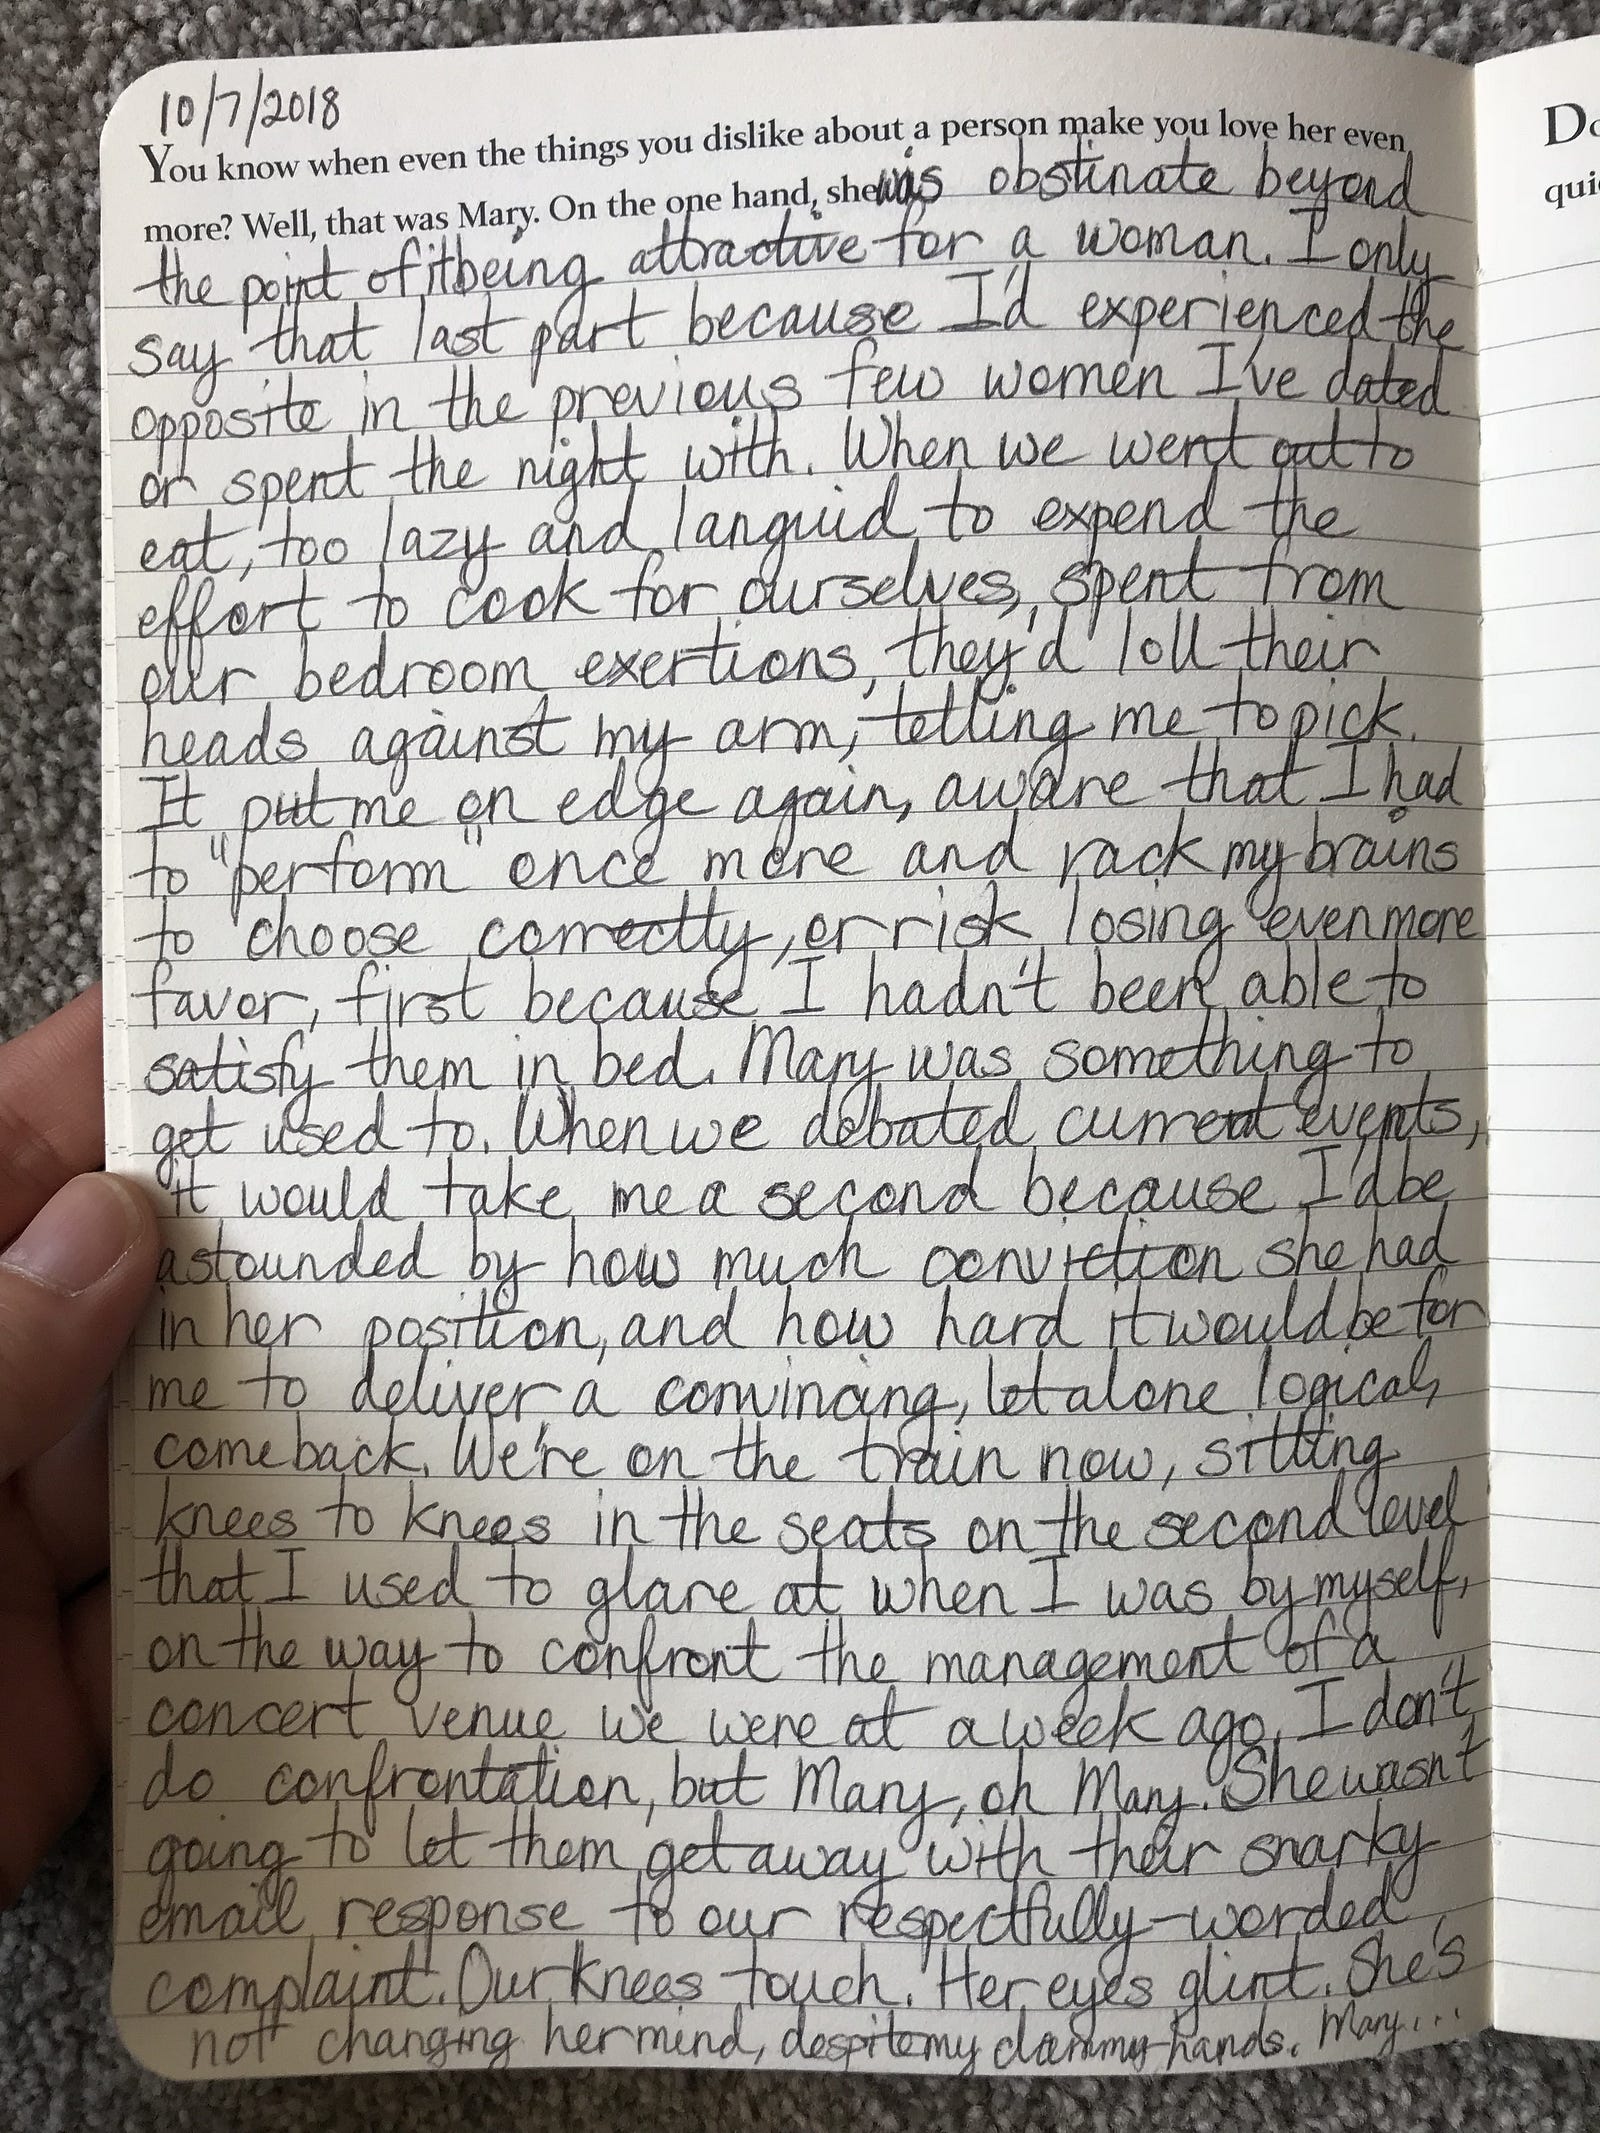 10/7/2018
You know when even the things you dislike about a person make you love her even
more? Well, that was Mary. On the one hand, she was obstinate beyond
the point of it being attractive for a woman. I only
say that last part because I'd experienced the
opposite in the previous few women I've dated
or spent the night with. When we went out to
eat, too lazy and languid to expend the
effort to cook for ourselves, spent from
our bedroom exertions, they'd loll their
heads against my arm, telling me to pick.
It put me on edge again, aware that I had
to "perform" once more and rack my brains
to choose correctly, or risk losing even more
favor, first because I hadn't been able to
satisfy them in bed. Mary was something to
get used to. When we debated current events,
it would take me a second because I'd be
astounded by how much conviction she had
in her position, and how hard it would be for
me to deliver a convincing, let alone logical,
comeback. We're on the train now, sitting
knees to knees in the seats on the second level
that I used to glare at when I was by myself,
on the way to confront the management of a
concert venue we were at a week ago. I don't
do confrontation, but Mary, oh Mary. She wasn't
going to let them get away with their snarky
email response to our respectfully-worded
complaint. Our knees touch. Her eyes glint. She's
not changing her mind, despite my clammy hands. Mary...
Do
qui